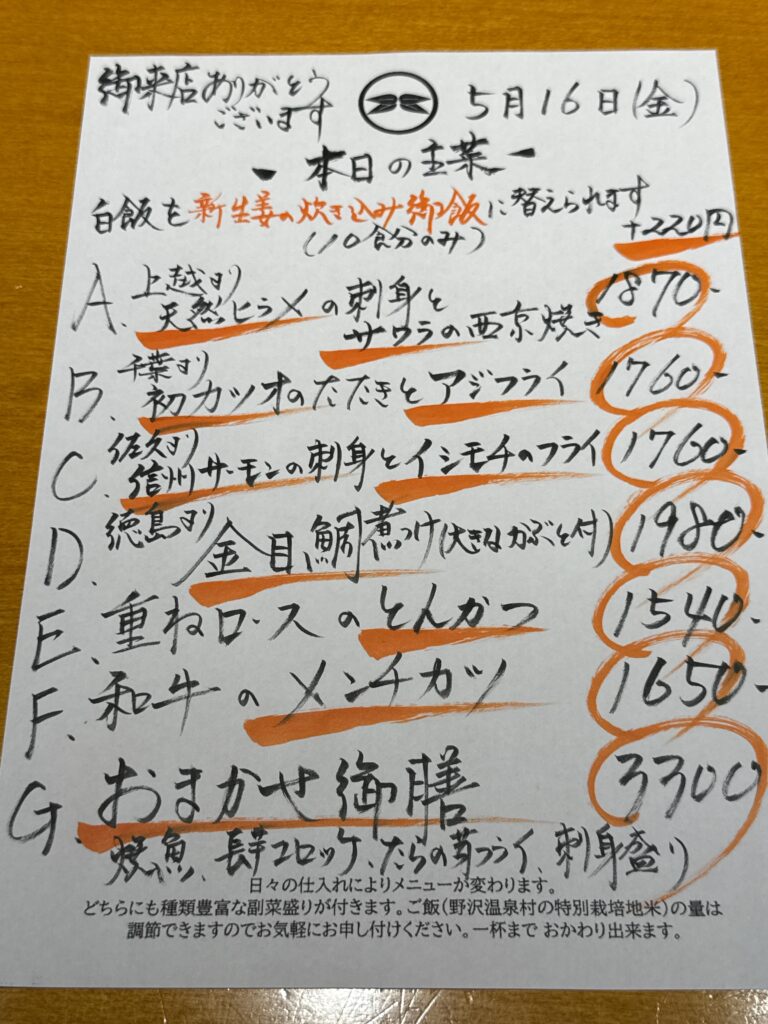 御来店ありがとう
ございます
5月16日(金)
- 本日の主菜 -
白飯を新生姜の炊き込み御飯に替えられます
(10食分のみ)
+220円
A. 上越より
天然ヒラメの刺身と
サワラの西京焼き 1870-
B. 千葉より
初カツオのたたきとアジフライ 1760-
C. 佐久より
信州サーモンの刺身とイシモチのフライ 1760-
D. 徳島より
金目鯛煮つけ(大きなかぶと付) 1980-
E. 重ねロースのとんかつ 1540-
F. 和牛のメンチカツ 1650-
G. おまかせ御膳 3300
焼魚、長芋コロッケ、たらの芽フライ、刺身盛り
日々の仕入れによりメニューが変わります。
どちらにも種類豊富な副菜盛りが付きます。ご飯(野沢温泉村の特別栽培地米)の量は
調節できますのでお気軽にお申し付けください。一杯まで おかわり出来ます。